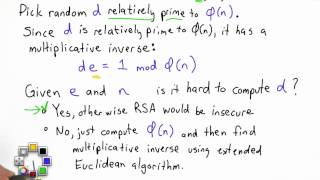 Pick random d relatively prime to φ(n).
Since d is relatively prime to φ(n), it has a
multiplicative inverse:
de = 1 mod φ(n)
Given e and n is it hard to compute d?
Yes, otherwise RSA would be insecure
• No, just compute φ(n) and then find
multiplicative inverse using extended
Euclidean algorithm.